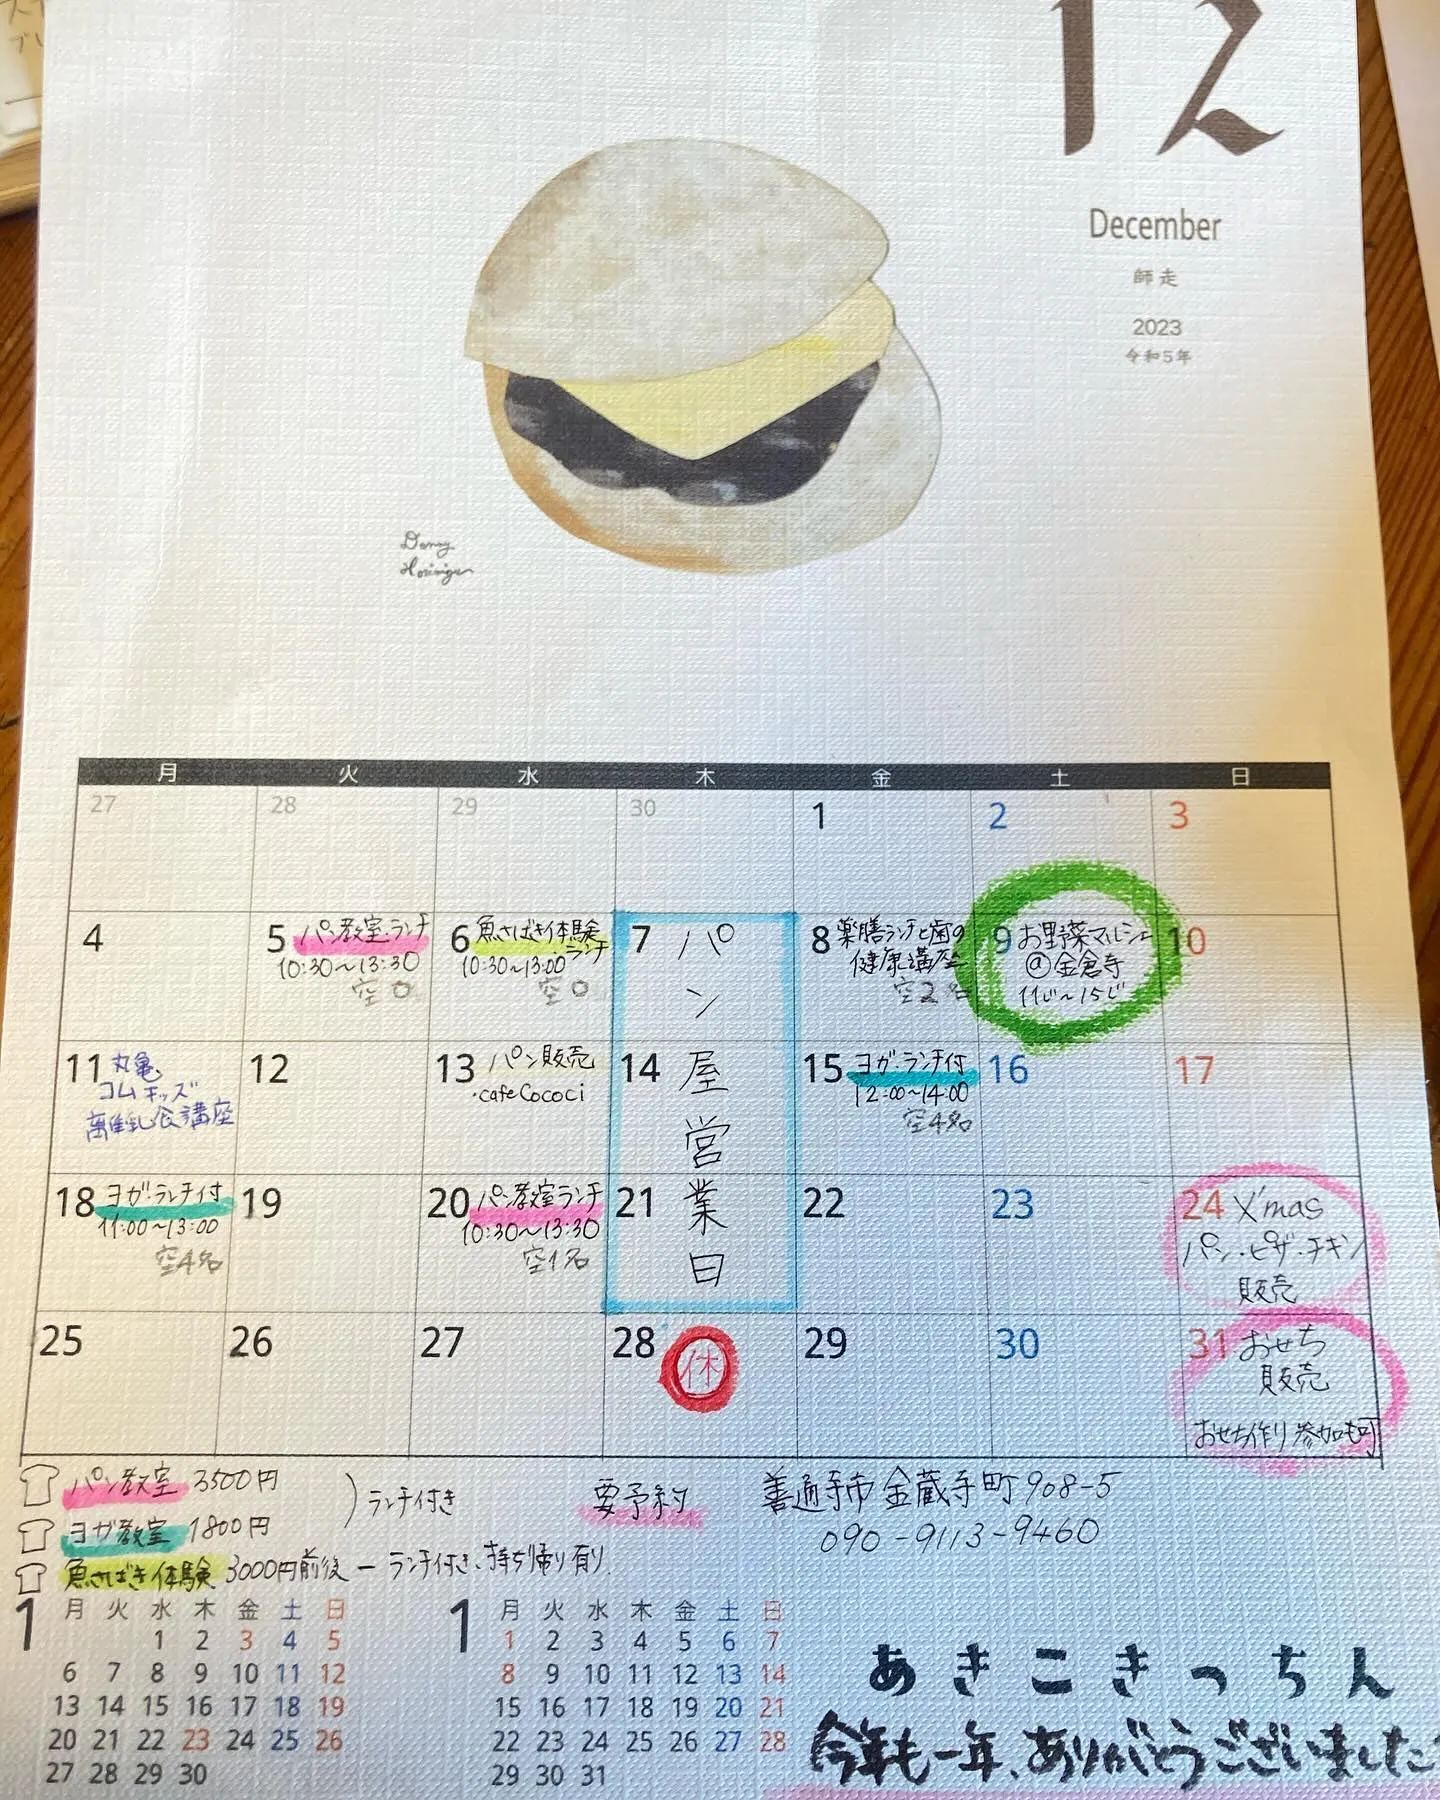 12
December
師走
2023
令和5年
Danny
月 火 水 木 金 土 日
27 28 29 30 1 2 3
4
5 パン教室・ランチ
10:30〜13:30
空0
6 魚さばき体験
・ランチ
10:30〜13:00
空0
7
パン屋営業日
8 薬膳ランチと歯の
健康講座
空2名
9 お野菜マルシェ
@金倉寺
11じ〜15じ
10
11 丸亀
コムキッズ
離乳食講座
12
13 パン販売
・cafe Cococi
14
15 ヨガ・ランチ付
12:00〜14:00
空4名
16
17
18 ヨガ・ランチ付
11:00〜13:00
空4名
19
20 パン教室ランチ
10:30〜13:30
空1名
21
22
23
24 X'mas
パン・ピザ・チキン
販売
25
26
27
28 休
29
30
31 おせち
販売
おせち作り参加も可
パン教室 3500円
ヨガ教室 1800円
ランチ付き
魚さばき体験 3000円前後 ー ランチ付き、持ち帰り有り.
要予約
善通寺市金蔵寺町908-5
090-9113-9460
1
月 火 水 木 金 土 日
1 2 3 4 5
6 7 8 9 10 11 12
13 14 15 16 17 18 19
20 21 22 23 24 25 26
27 28 29 30
1
月 火 水 木 金 土 日
1 2 3 4 5 6 7
8 9 10 11 12 13 14
15 16 17 18 19 20 21
22 23 24 25 26 27 28
29 30 31
あきこきっちん
今年も一年、ありがとうございました